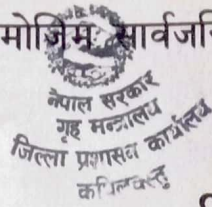 मोजिम सार्वजनि
नेपाल सरकार
गृह मन्त्रालय
जिल्ला प्रशासन कार्यालय
कपिलवस्तु